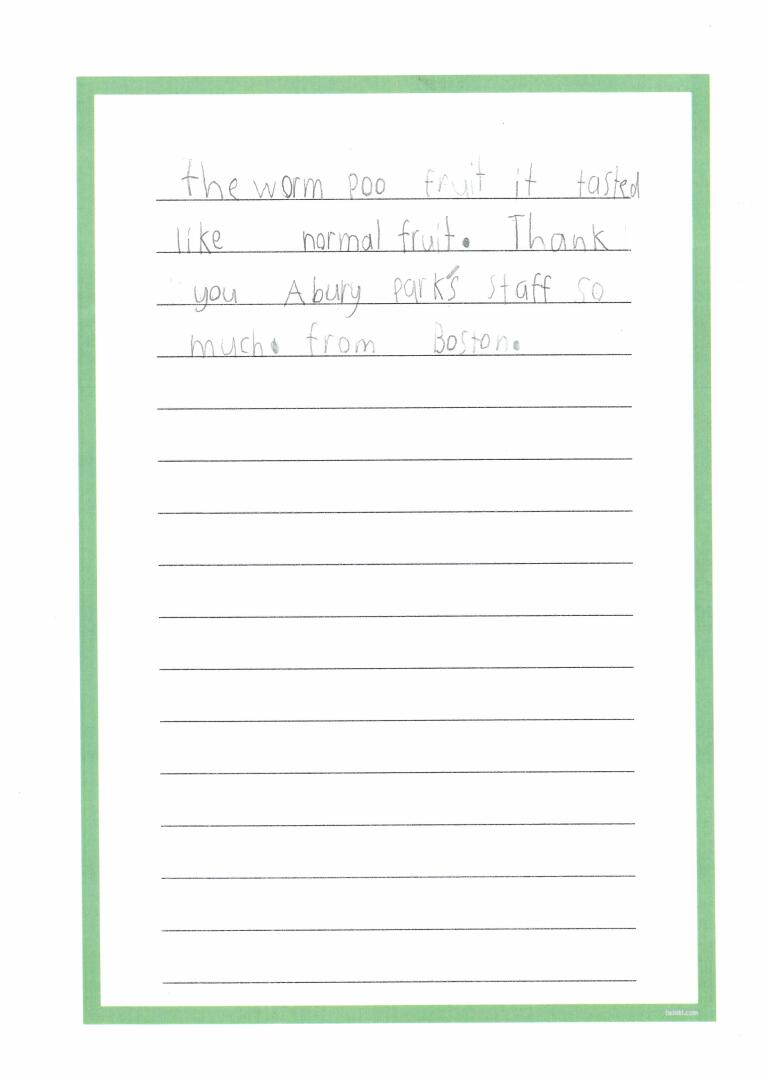 the worm poo fruit it tasted
like normal fruit. Thank
you Abury park's staff so
much. from Boston.
twinkl.com